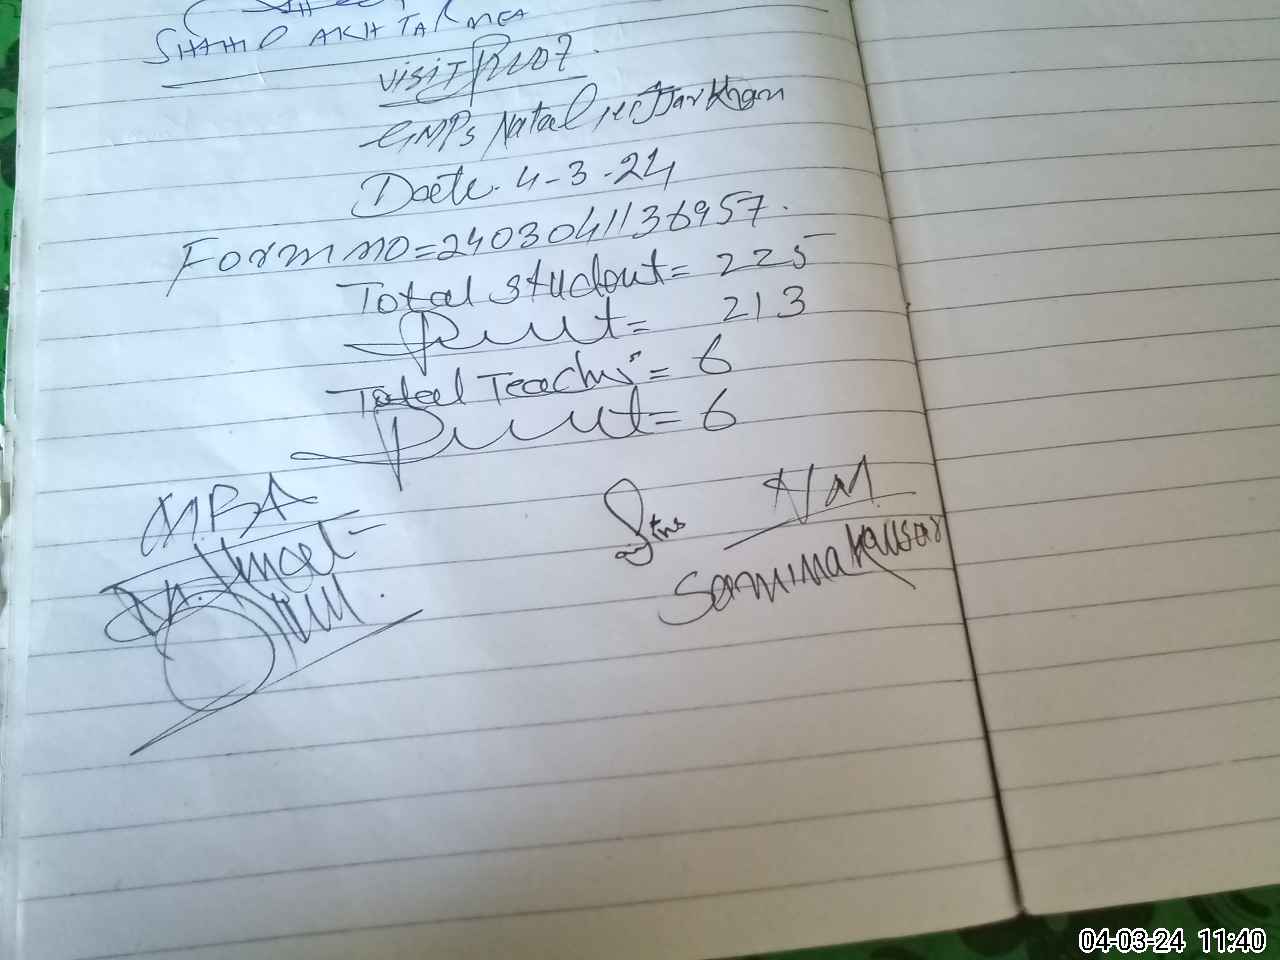 SHAHID AKHTAR MEA
VISIT
GMPS Natal
Date. 4-3-24
Form no=2403041136957.
Total student= 225
Present= 213
Total Teacher's= 6
Present= 6
MBA
HM
Samina Kausar
04-03-24 11:40